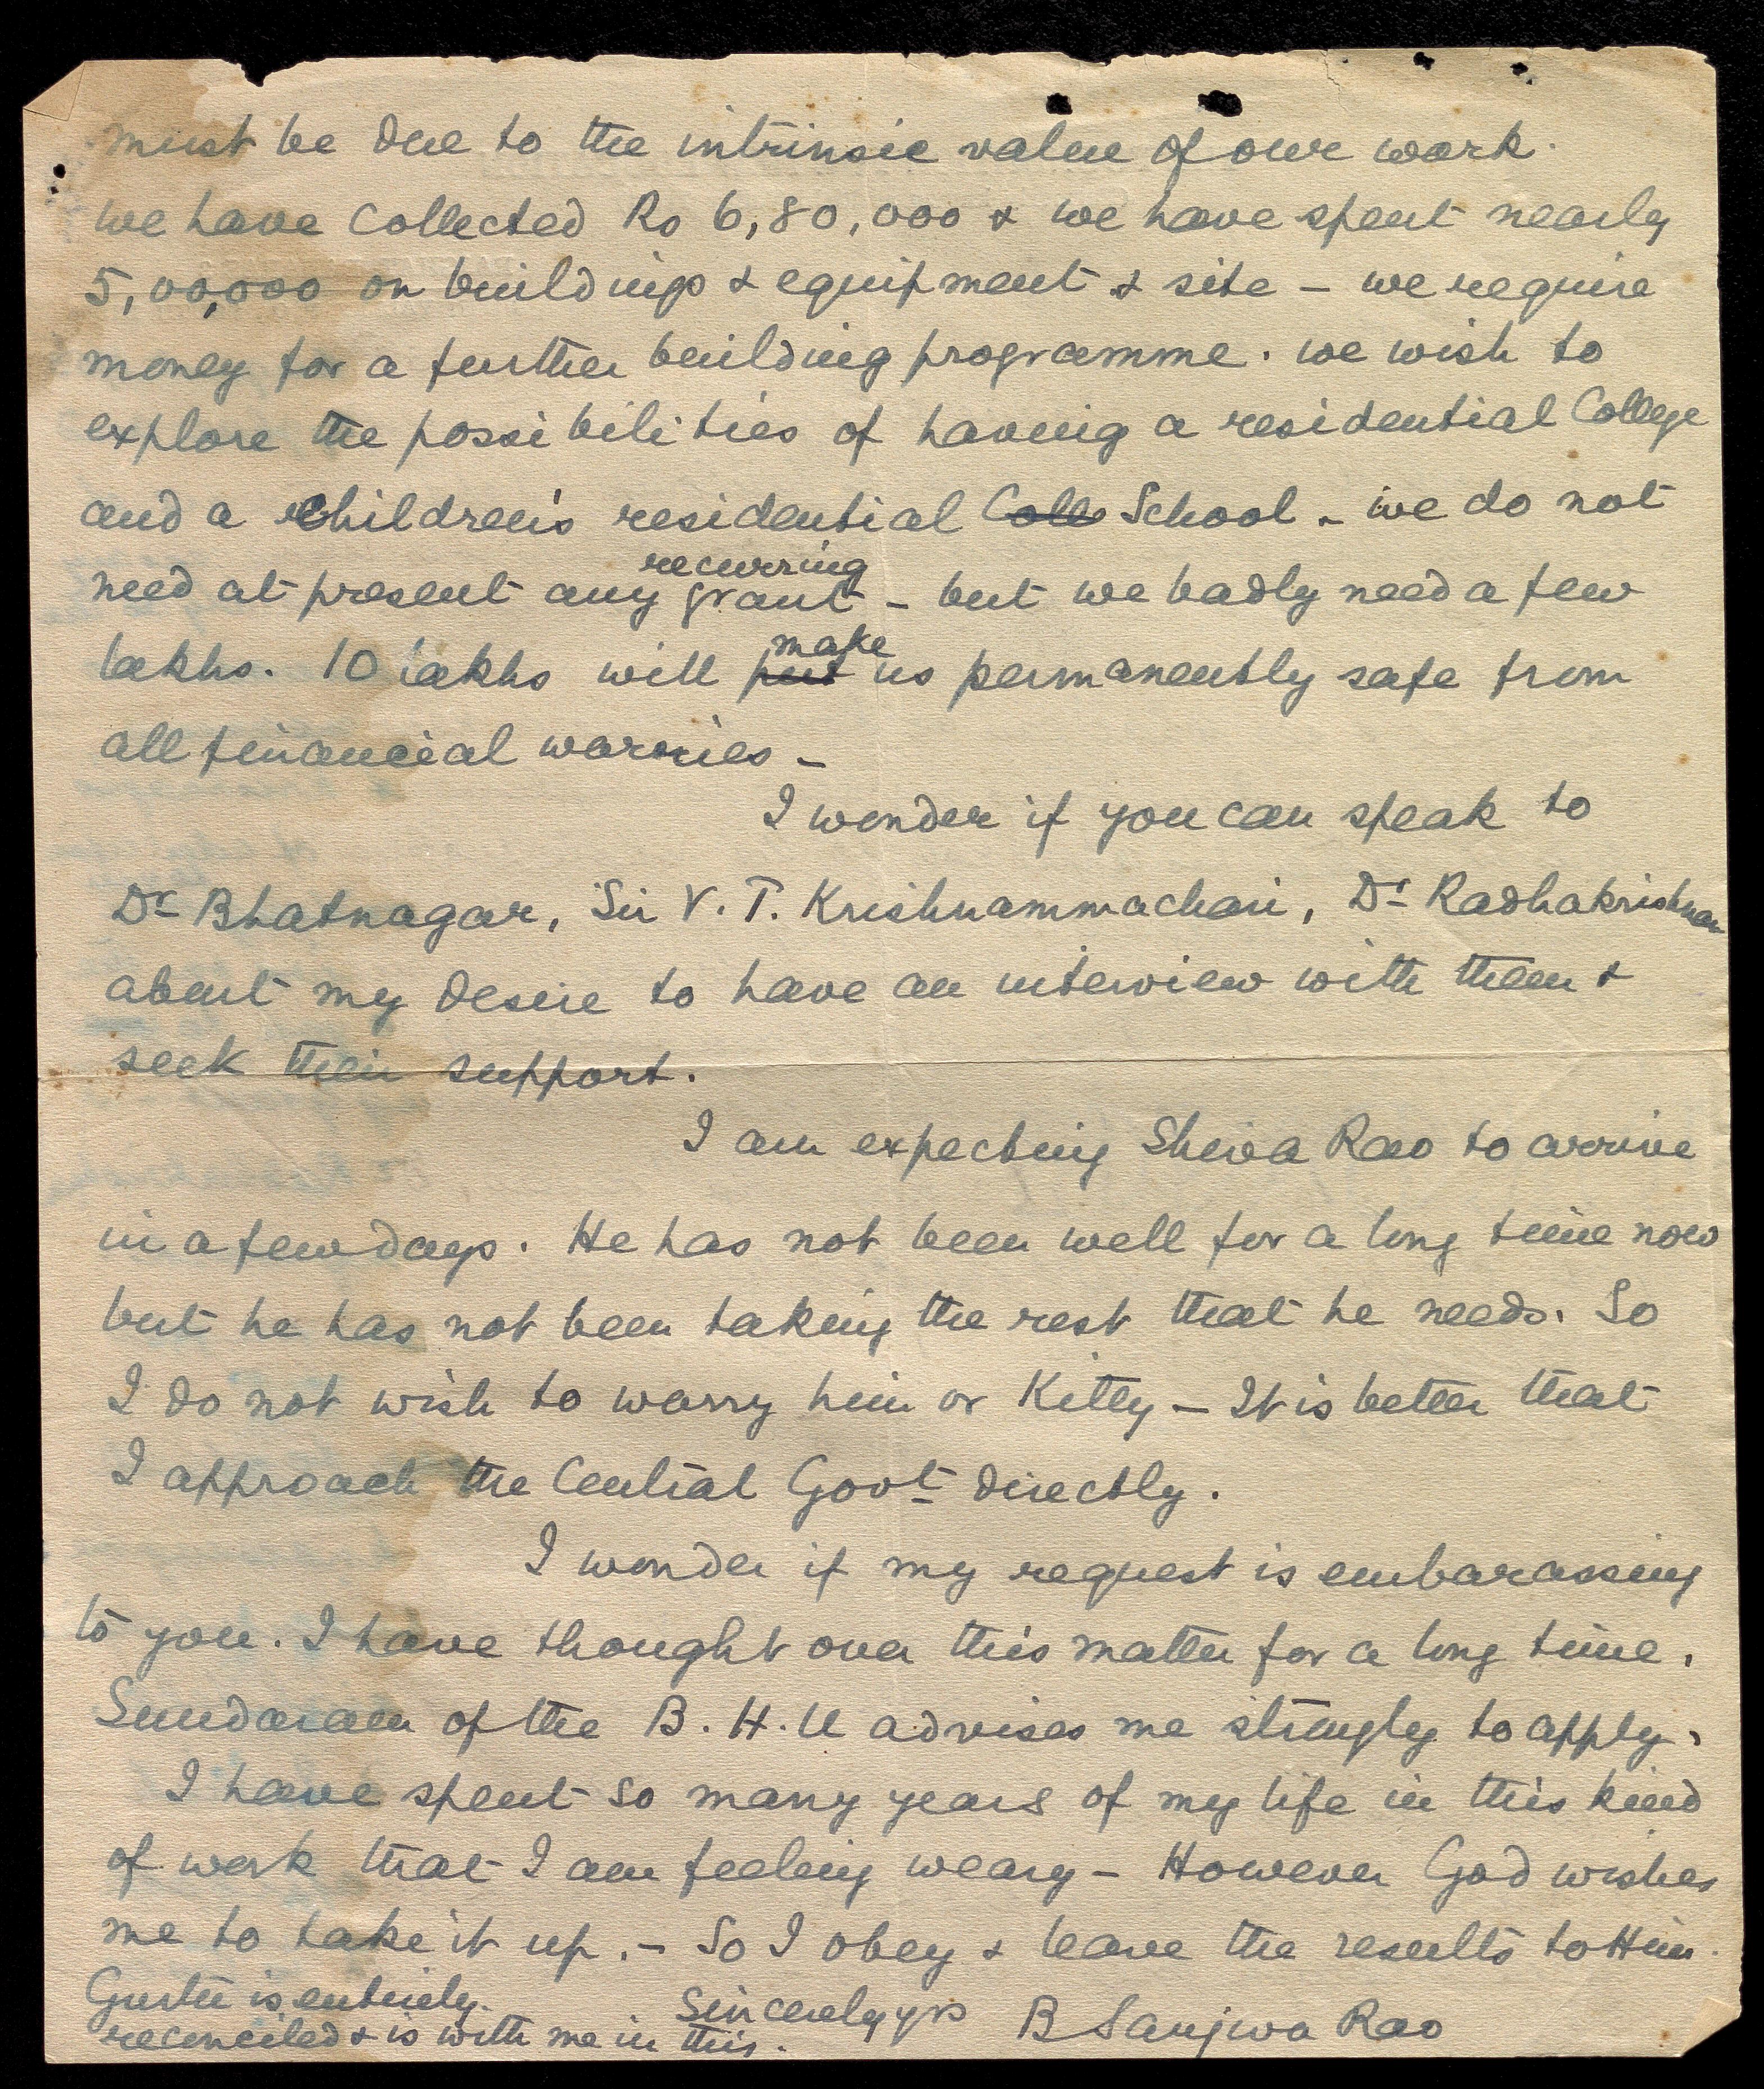 must be due to the intrinsic value of our work.
we have collected Rs 6,80,000 & we have spent nearly
5,00,000 on buildings & equipment & site – we require
money for a further building programme. we wish to
explore the possibilities of having a residential College
and a children's residential Colle School – we do not
need at present any recurring grant – but we badly need a few
lakhs. 10 lakhs will put make us permanently safe from
all financial worries –
I wonder if you can speak to
Dr Bhatnagar, Sir V. T. Krishnammachari, Dr Radhakrishnan
about my desire to have an interview with them &
seek their support.
I am expecting Shiva Rao to arrive
in a few days. He has not been well for a long time now
but he has not been taking the rest that he needs. So
I do not wish to worry him or Kitty – It is better that
I approach the Central Govt directly.
I wonder if my request is embarassing
to you. I have thought over this matter for a long time.
Sundaram of the B.H.U advises me strongly to apply.
I have spent so many years of my life in this kind
of work that I am feeling weary – However God wishes
me to take it up. – So I obey & leave the results to Him.
Sincerely yrs B Sanjiva Rao
is entirely
reconciled & is with me in this.